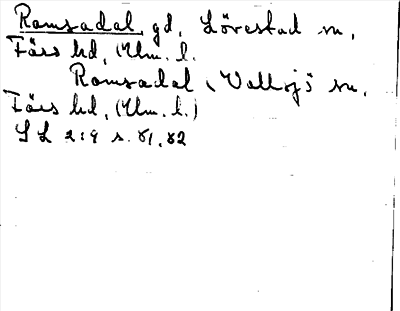 Ramsadal, gd, Lövestad sn,
Färs hd, (Mlm. l.
Ramsadal, Vallsjö sn,
Färs hd, (Mlm. l.)
SL 2:9 s. 81, 82